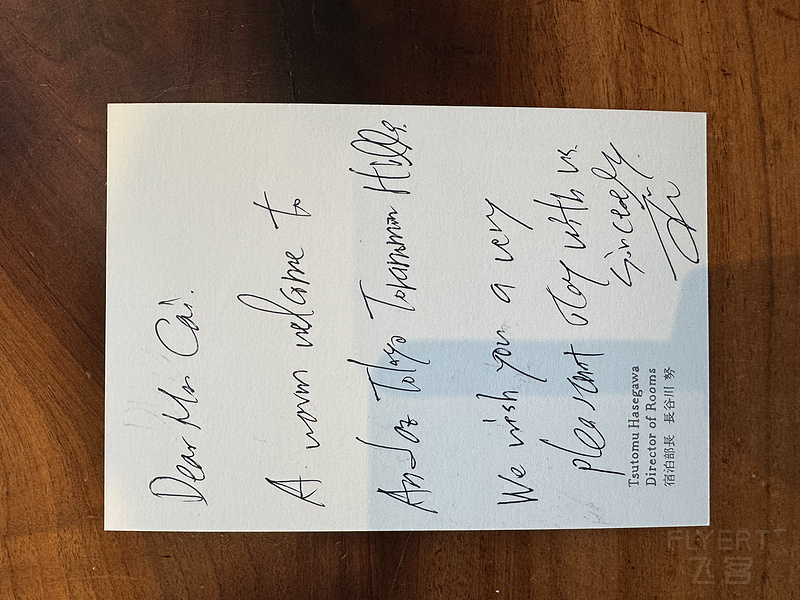 Dear Mr. Cai.
A warm welcome to
Andaz Tokyo Toranomon Hills.
We wish you a very
pleasant stay with us.
Sincerely
Tsutomu Hasegawa
Director of Rooms
宿泊部長 長谷川 努
FLYERT
飞客